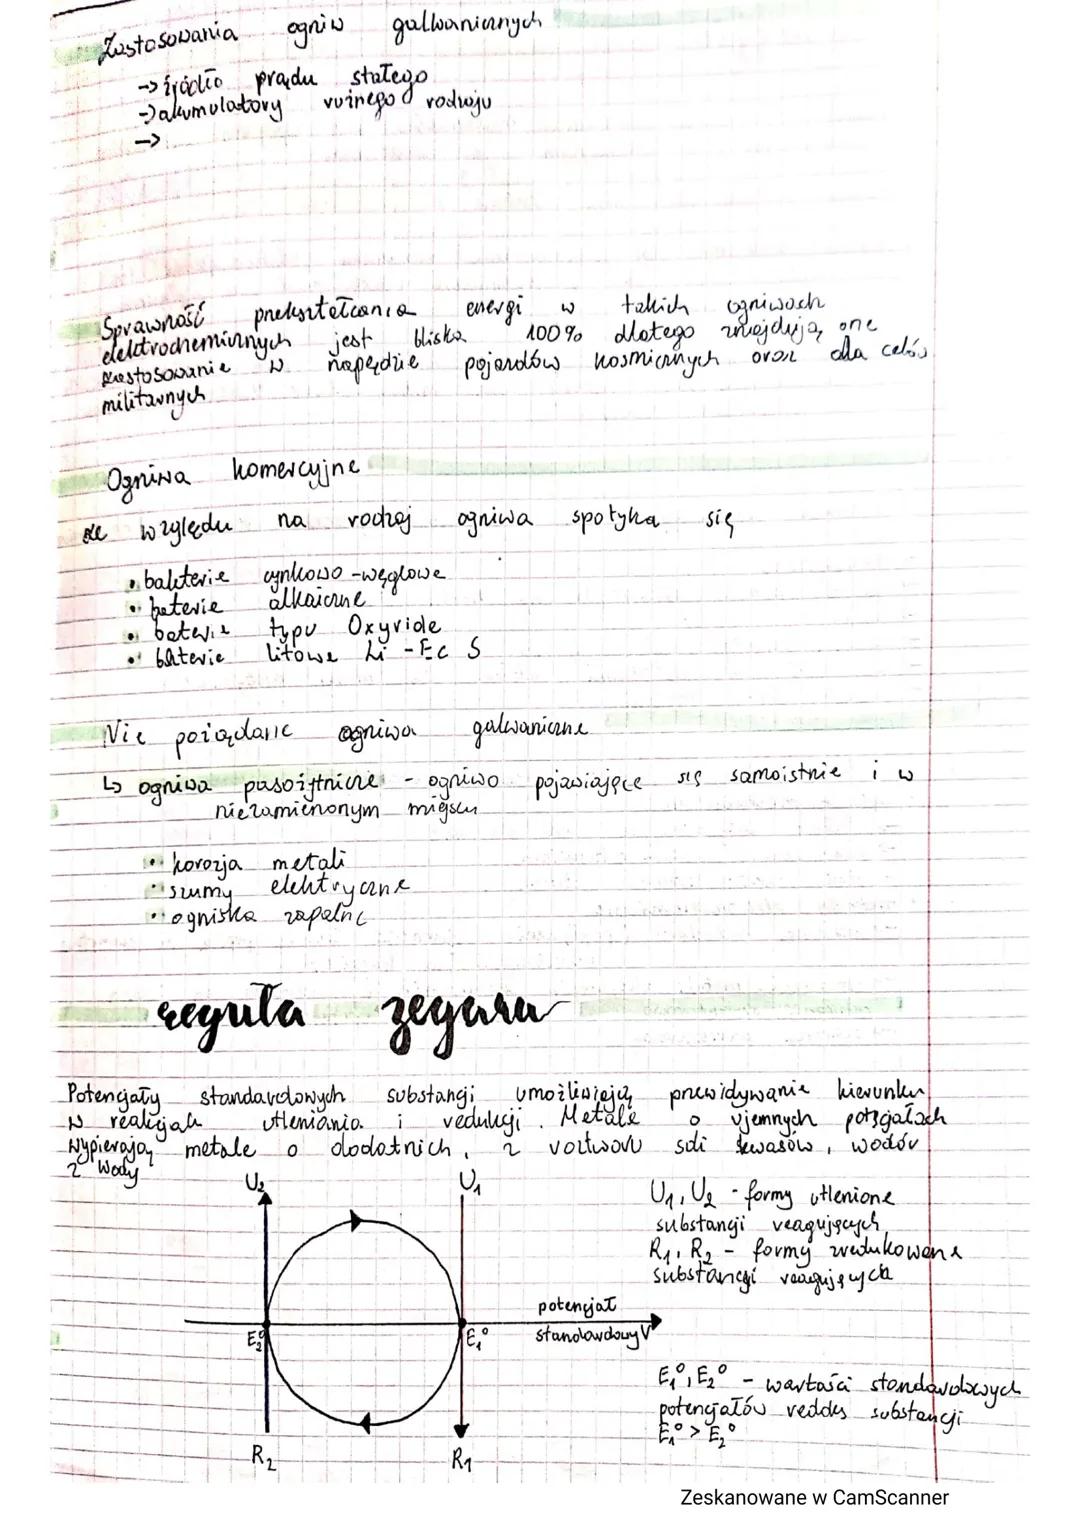 Zastosowania ogniw galwanicznych
-> źródło prądu stałego
-> akumulatory różnego rodzaju
->
Sprawność przekształcania energi w takich ogniwach
elektrochemicznych jest bliska 100% dlatego znajdują one
zastosowanie w napędzie pojazdów kosmicznych oraz dla celów
militarnych
Ogniwa komercyjne
ze względu na rodzaj ogniwa spotyka się
• bakterie cynkowo-węglowe
• baterie alkaiczne
• baterie typu Oxyride
• baterie litowe Li-Ec S
Nie pożądane ogniwa galwaniczne
↳ ogniwa pasożytnicze - ogniwo pojawiające się samoistnie i w
niezamierzonym miejscu
• korozja metali
• szumy elektryczne
• ogniska zapalne
reguła zegara
Potencjały standardowych substancji umożliwiają przewidywanie kierunku
w reakcjach utleniania i redukcji. Metale o ujemnych potencjałach
wypierają metale o dodatnich, z roztworu soli kwasów, wodór
z wody
U₂ U₁
U₁, U₂ - formy utlenione
substancji reagujących
R₁, R₂ - formy zredukowane
substancji reagujących
potencjał
standardowy V
E₂⁰ E₁⁰
E₁⁰, E₂⁰ - wartości standardowych
potencjałów reddks substancji
E₁⁰ > E₂⁰
R₂ R₁
Zeskanowane w CamScanner